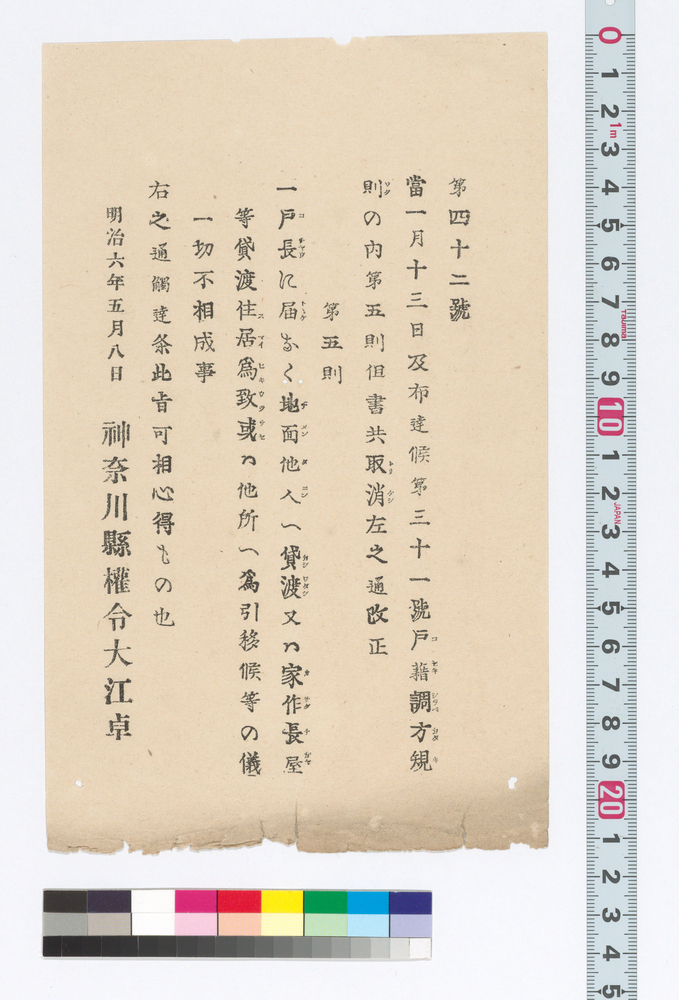 第四十二號
當一月十三日及布達候第三十一號戸藉調方規
則の内第五則但書共取消左之通改正
第五則
一戸長に届なく地面他人へ貸渡又ハ家作長屋
等貸渡住居爲致或ハ他所へ爲引移候等の儀
一切不相成事
右之通觸達条此旨可相心得もの也
明治六年五月八日 神奈川縣權令大江卓
0
1
2
1m
3
4
5
6
7
Tajima
8
9
10
1
2
JAPAN
3
4
5
6
7
8
9
20
1
2
3
4
5